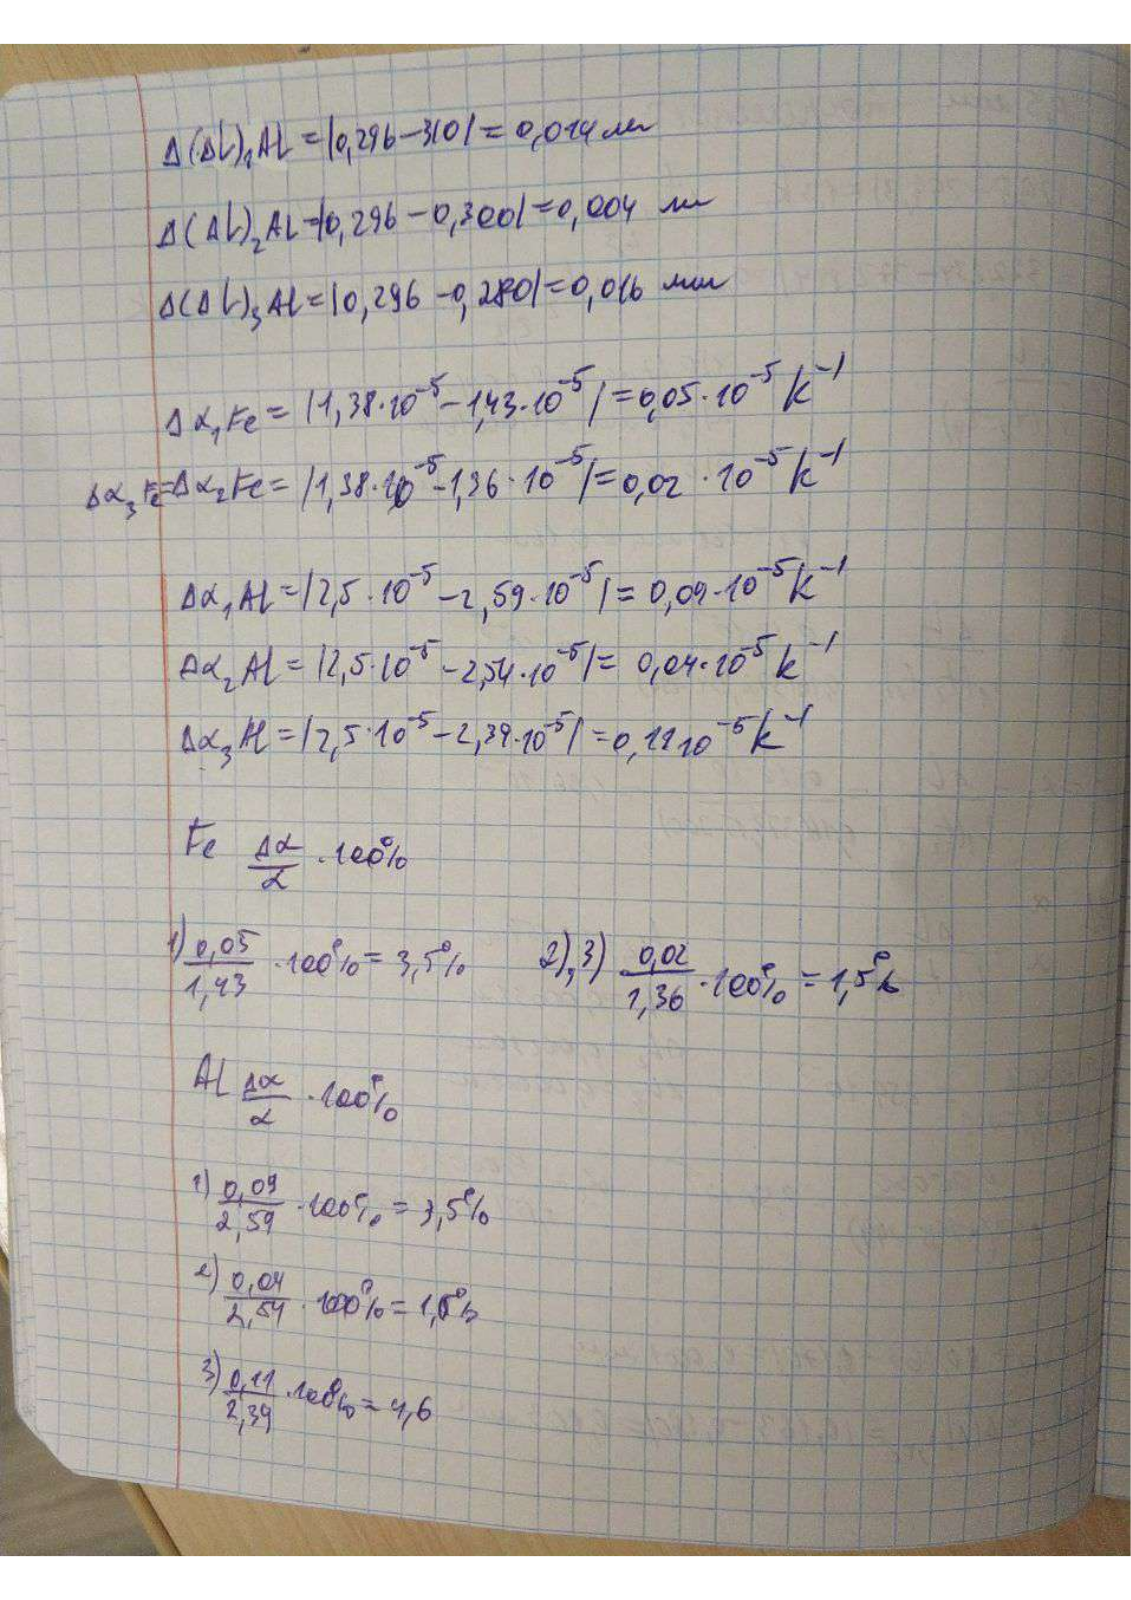 Δ(ΔL)₁AL = |0,296-310| = 0,014 мм
Δ(ΔL)₂AL = |0,296 - 0,300| = 0,004 мм
Δ(ΔL)₃AL = |0,296 - 0,280| = 0,016 мм
Δα₁Fe = |1,38·10⁻⁵ - 1,43·10⁻⁵| = 0,05·10⁻⁵ k⁻¹
Δα₃Fe = Δα₂Fe = |1,38·10⁻⁵ - 1,36·10⁻⁵| = 0,02·10⁻⁵ k⁻¹
Δα₁AL = |2,5·10⁻⁵ - 2,59·10⁻⁵| = 0,09·10⁻⁵ k⁻¹
Δα₂AL = |2,5·10⁻⁵ - 2,54·10⁻⁵| = 0,04·10⁻⁵ k⁻¹
Δα₃Al = |2,5·10⁻⁵ - 2,39·10⁻⁵| = 0,11 10⁻⁵ k⁻¹
Fe Δα/α · 100%
1) 0,05/1,43 · 100% = 3,5% 2),3) 0,02/1,36 · 100% = 1,5%
AL Δα/α · 100%
1) 0,09/2,59 · 100% = 3,5%
2) 0,04/2,54 · 100% =
3) 0,11/2,39 · 100% = 4,6